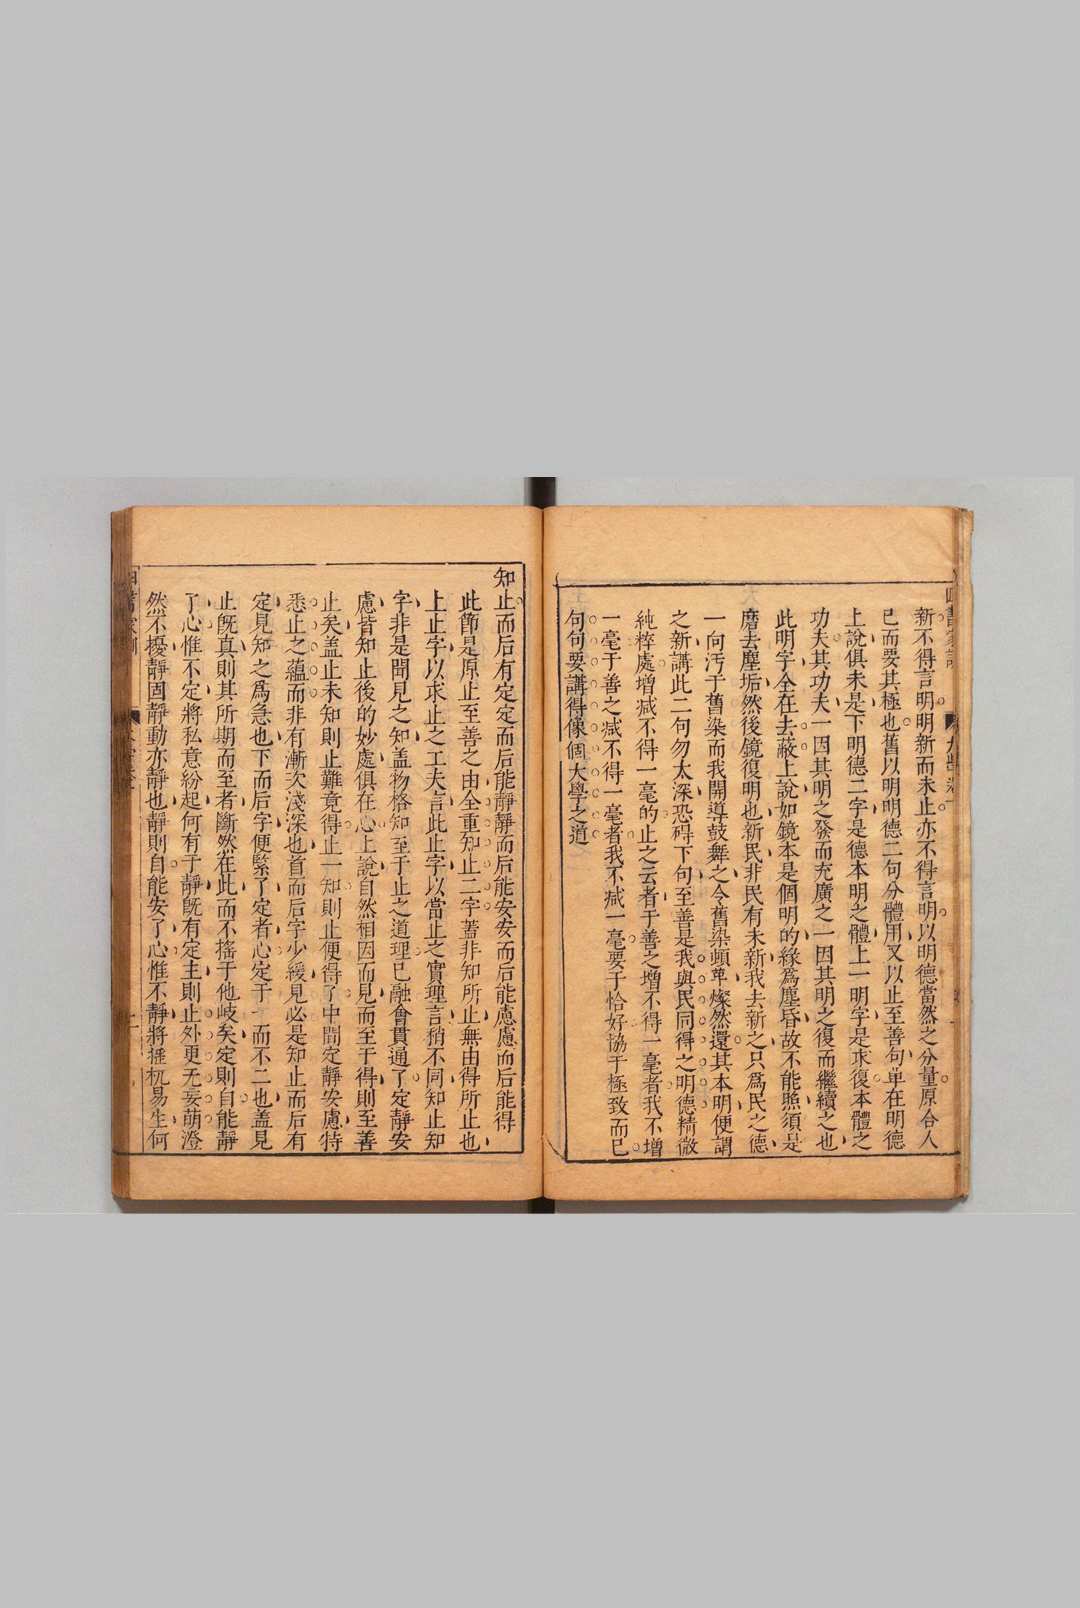 新不得言明明新而未止亦不得言明以明德當然之分量原合人
已而要其極也舊以明明德二句分體用又以止至善句单在明德
上說俱未是下明德二字是德本明之體上一明字是求復本體之
功夫其功夫一因其明之發而充廣之一因其明之復而繼續之也
此明字全在去蔽上說如鏡本是個明的緣為塵昏故不能照須是
磨去塵垢然後鏡復明也新民非民有未新我去新之只爲民之德
一向汚于舊染而我開導鼓舞之令舊染頓革燦然還其本明便謂
之新講此二句勿太深恐碍下句至善是我與民同得之明德精微
純粹處增减不得一毫的止之云者于善之增不得一毫者我不增
一毫于善之减不得一毫者我不减一毫要于恰好協于極致而已
句句要講得像個大學之道
知止而后有定定而后能靜靜而后能安安而后能慮慮而后能得
此節是原止至善之由全重知止二字蓋非知所止無由得所止也
上止字以求止之工夫言此止字以當止之實理言稍不同知止知
字非是聞見之知盖物格知至于止之道理已融會貫通了定靜安
慮皆知止後的妙處俱在心上說自然相因而見而至于得則至善
止矣盖止未知則止難竟得止一知則止便得了中間定靜安慮特
悉止之蘊而非有漸次淺深也首而后字少緩見必是知止而后有
定見知之爲急也下而后字便緊了定者心定于一而不二也盖見
止旣真則其所期而至者斷然在此而不搖于他岐矣定則自能靜
了心惟不定將私意紛起何有于靜旣有定主則止外更无妄萌澄
然不擾靜固靜動亦靜也靜則自能安了心惟不靜將摇杌易生何